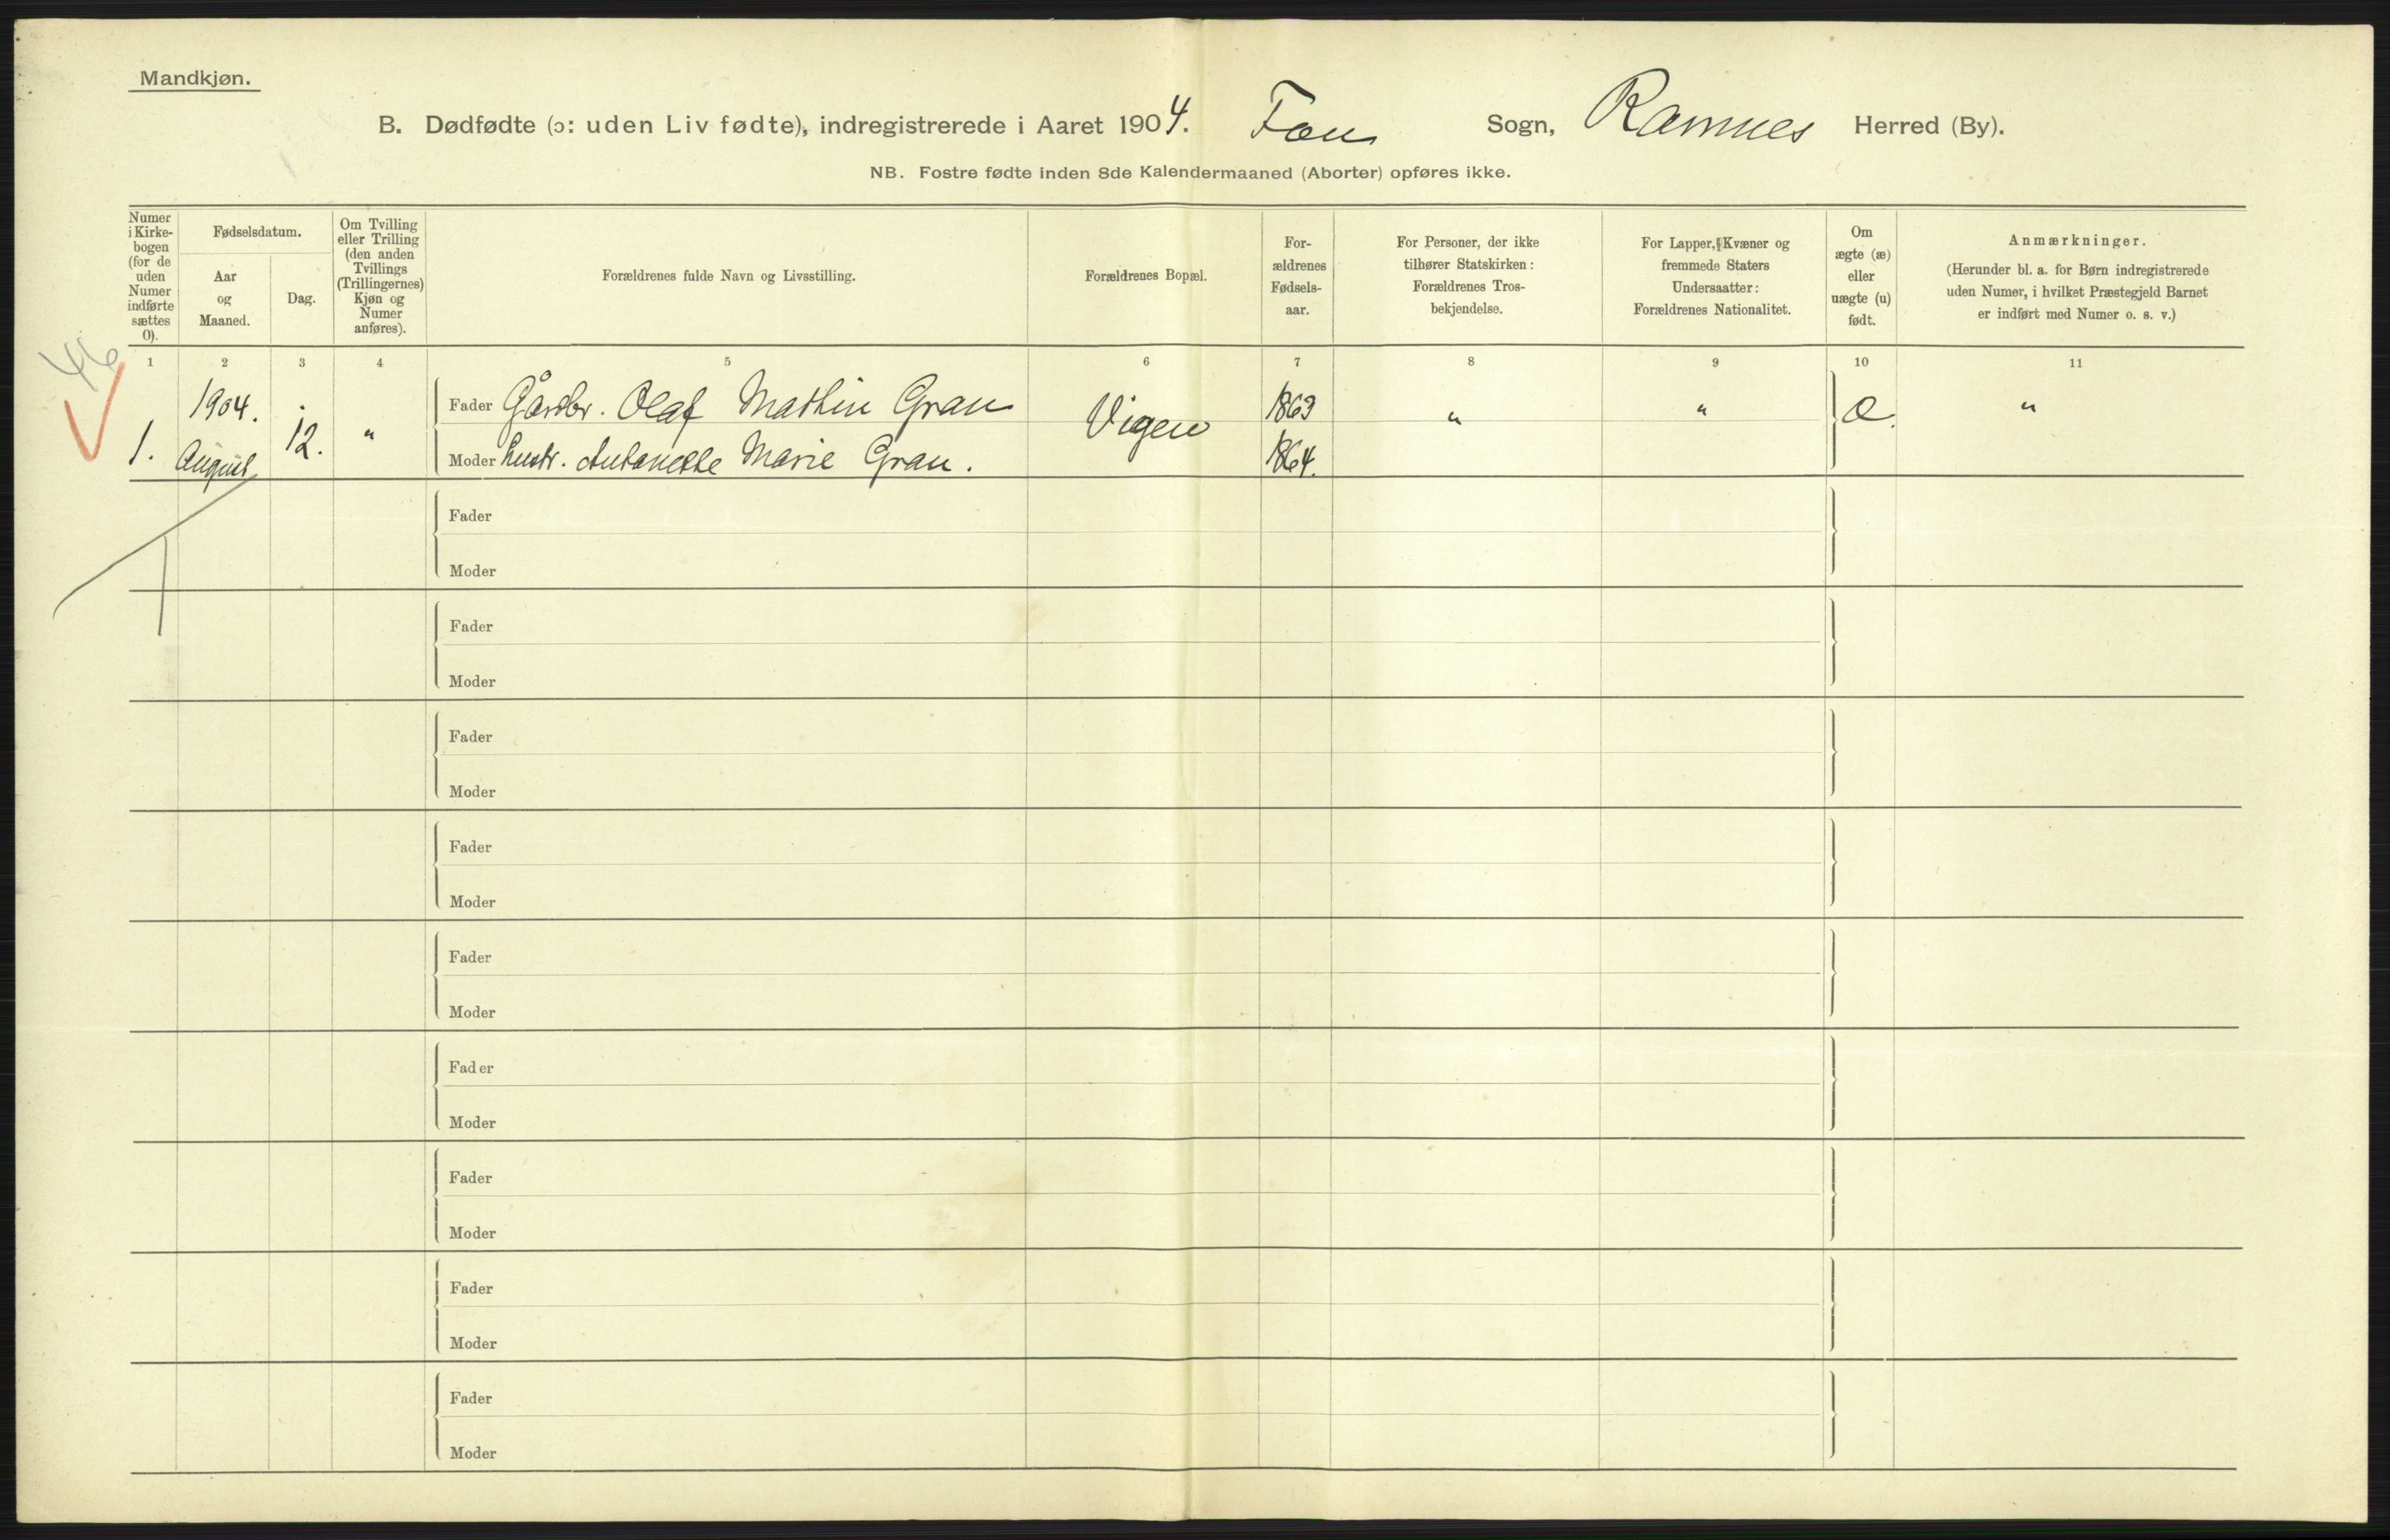 Mandkjøn.
B. Dødfødte (ɔ: uden Liv fødte), indregistrerede i Aaret 1904. Fon Sogn, Ramnes Herred (By).
NB. Fostre fødte inden 8de Kalendermaaned (Aborter) opføres ikke.
Numer i Kirkebogen (for de uden Numer indførte sættes 0).
Fødselsdatum.
Aar og Maaned.
Dag.
Om Tvilling eller Trilling (den anden Tvillings (Trillingernes) Kjøn og Numer anføres).
Forældrenes fulde Navn og Livsstilling.
Forældrenes Bopæl.
Forældrenes Fødselsaar.
For Personer, der ikke tilhører Statskirken: Forældrenes Trosbekjendelse.
For Lapper, Kvæner og fremmede Staters Undersaatter: Forældrenes Nationalitet.
Om ægte (æ) eller uægte (u) født.
Anmærkninger.
(Herunder bl. a. for Børn indregistrerede uden Numer, i hvilket Præstegjeld Barnet er indført med Numer o. s. v.)
1 2 3 4 5 6 7 8 9 10 11
46
1. 1904. August 12. "
Fader Gårdbr. Olaf Mathin Gran
Moder hustr. Antonette Marie Gran.
Vigen
1863
1864.
" " æ. "
Fader
Moder
Fader
Moder
Fader
Moder
Fader
Moder
Fader
Moder
Fader
Moder
Fader
Moder
Fader
Moder
Fader
Moder